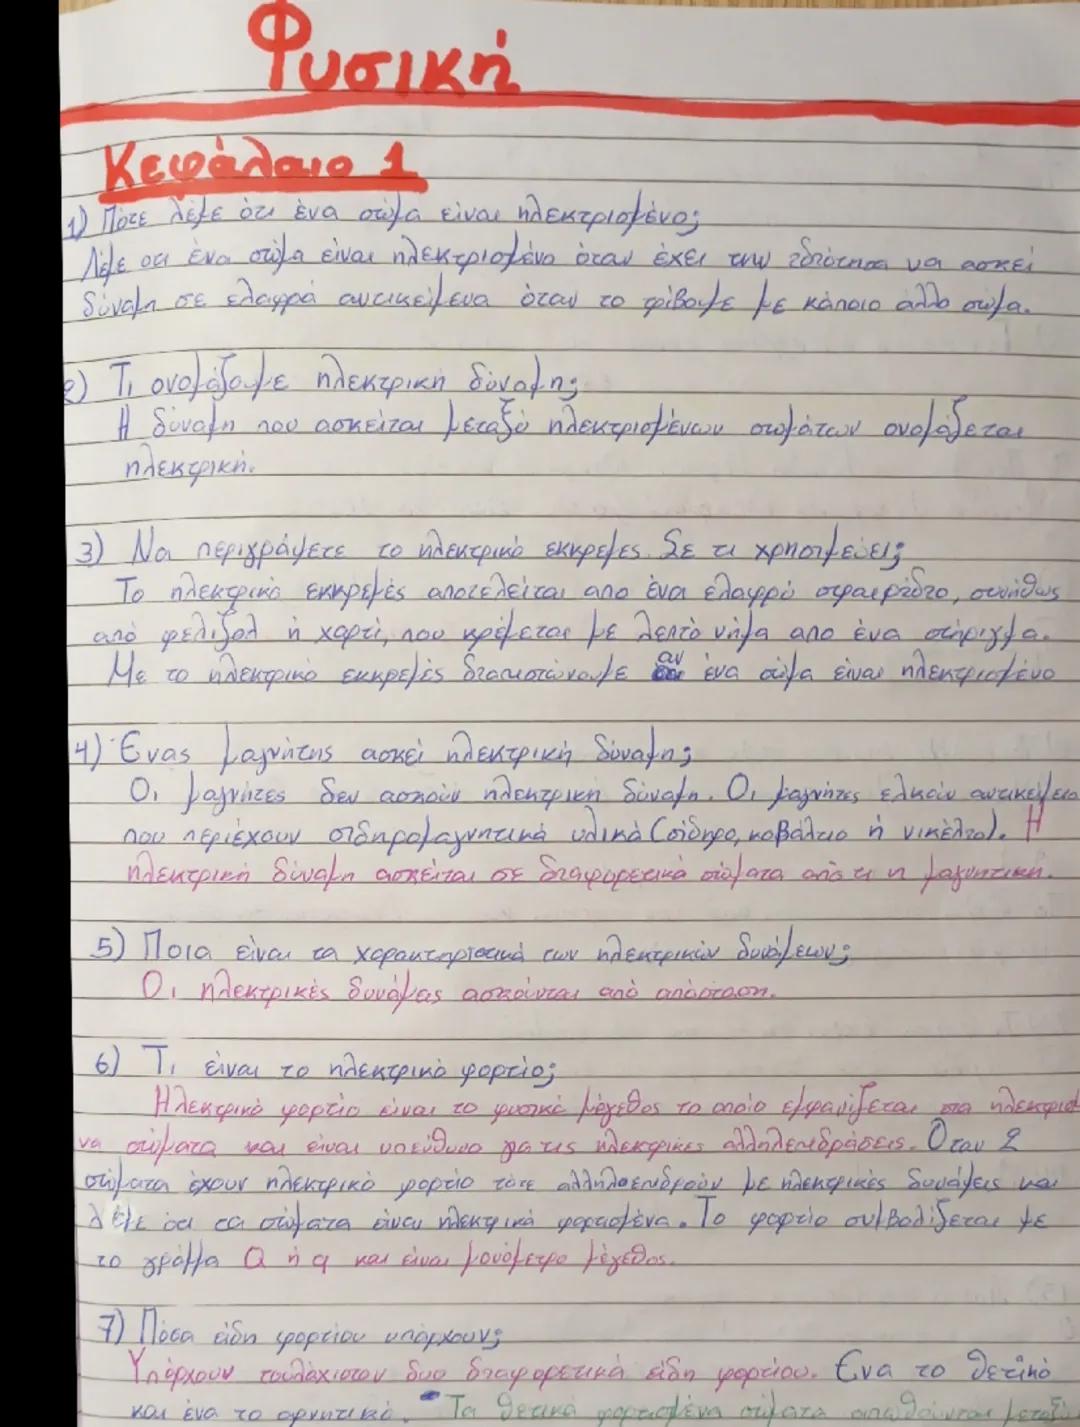 Φυσική
Κεφάλαιο 1
1) Πότε λέμε ότι ένα σώμα είναι ηλεκτρισμένο;
Λέμε οτι ένα σώμα είναι ηλεκτρισμένο όταν έχει την ιδιότητα να ασκεί
δύναμη σε ελαφρά αντικείμενα όταν το τρίβουμε με κάποιο άλλο σώμα.
2) Τι ονομάζουμε ηλεκτρική δύναμη;
Η δύναμη που ασκείται μεταξύ ηλεκτρισμένων σωμάτων ονομάζεται
ηλεκτρική.
3) Να περιγράψετε το ηλεκτρικό εκκρεμές. Σε τι χρησιμεύει;
Το ηλεκτρικό εκκρεμές αποτελείται απο ένα ελαφρύ σφαιρίδιο, συνήθως
από φελιζολ ή χαρτί, που κρέμεται με λεπτό νήμα απο ένα στήριγμα.
Με το ηλεκτρικό εκκρεμές διαπιστώνουμε αν ένα σώμα είναι ηλεκτρισμένο
4) Ένας μαγνήτης ασκεί ηλεκτρική δύναμη;
Οι μαγνήτες δεν ασκούν ηλεκτρική δύναμη. Οι μαγνήτες έλκουν αντικείμενα
που περιέχουν σιδηρομαγνητικά υλικά (σίδηρο, κοβάλτιο ή νικέλιο). Η
ηλεκτρική δύναμη ασκείται σε διαφορετικά σώματα από τι η μαγνητική.
5) Ποια είναι τα χαρακτηριστικά των ηλεκτρικών δυνάμεων;
Οι ηλεκτρικές δυνάμεις ασκούνται από απόσταση.
6) Τι είναι το ηλεκτρικό φορτίο;
Ηλεκτρικό φορτίο είναι το φυσικό μέγεθος το οποίο εμφανίζεται στα ηλεκτρισμέ
να σώματα και είναι υπεύθυνο για τις ηλεκτρικές αλληλεπιδράσεις. Όταν 2
σώματα έχουν ηλεκτρικό φορτίο τότε αλληλοεπιδρούν με ηλεκτρικές δυνάμεις και
λέμε ότι τα σώματα είναι ηλεκτρικά φορτισμένα. Το φορτίο συμβολίζεται με
το γράμμα Q ή q και είναι μονόμετρο μέγεθος.
7) Πόσα είδη φορτίου υπάρχουν;
Υπάρχουν τουλάχιστον δυο διαφορετικά είδη φορτίου. Ένα το θετικό
και ένα το αρνητικό. Τα θετικά φορτισμένα σώματα απωθούνται μεταξύ